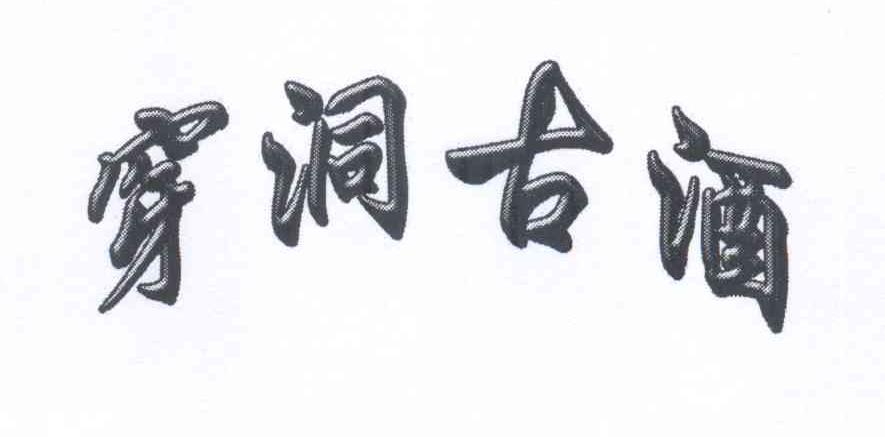 穿洞古酒